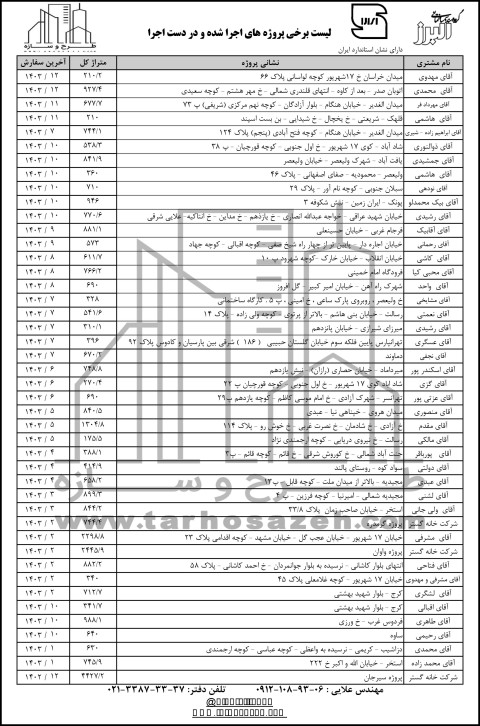 لیست برخی پروژه های اجرا شده و در دست اجرا
دارای نشان استاندارد ایران
البرز
طرح و سازه
نام مشتری نشانی پروژه متراژ کل آخرین سفارش
آقای مهدوی میدان خراسان خ ۱۷شهریور کوچه لواسانی پلاک ۶۶ ۲۱۰/۲ ۱۲ / ۱۴۰۳
آقای محمدی اتوبان صدر - بعد از کاوه - انتهای قلندری شمالی - خ مهر هشتم - کوچه سعیدی ۹۲۷/۴ ۱۲ / ۱۴۰۳
آقای مهرداد فر میدان الغدیر - خیابان هنگام - بلوار آزادگان - کوچه نهم مرکزی (شریفی) پ ۷۳ ۶۷۷/۷ ۱۱ / ۱۴۰۳
آقای هاشمی قلهک - شریعتی - خ یخچال - خ شیدایی - بن بست اسپند ۲۱۰ ۱۱ / ۱۴۰۳
آقای ابراهیم زاده - شیری میدان الغدیر - خیابان هنگام - کوچه فتح آبادی (پنجم) پلاک ۱۲۴ ۷۴۴/۱ ۷ / ۱۴۰۳
آقای ذوالنوری شاد آباد - کوی ۱۷ شهریور - خ اول جنوبی - کوچه قورچیان - پ ۳۸ ۵۳۸/۳ ۱۰ / ۱۴۰۳
آقای جمشیدی یافت آباد - شهرک ولیعصر - خیابان ولیعصر ۸۴۱/۹ ۱۰ / ۱۴۰۳
آقای هاشمی ولیعصر - محمودیه - صفای اصفهانی - پلاک ۴۶ ۳۶۰ ۱۰ / ۱۴۰۳
آقای نودهی سبلان جنوبی - کوچه نام آور - پلاک ۲۹ ۷۱۰ ۱۰ / ۱۴۰۳
آقای بیک محمدلو پونک - ایران زمین - نبش شکوفه ۳ ۹۴۶ ۱۰ / ۱۴۰۳
آقای رشیدی خیابان شهید عراقی - خواجه عبدالله انصاری - خ یازدهم - خ مداین - خ انتاکیه- علایی شرقی ۷۷۰/۶ ۱۰ / ۱۴۰۳
آقای آقابیک فرجام غربی - خیابان حسینعلی ۸۸۱/۱ ۹ / ۱۴۰۳
آقای رحمانی خیابان اجاره دار - پایین تر از چهار راه شیخ صفی - کوچه اقبالی - کوچه جهاد ۵۷۳ ۹ / ۱۴۰۳
آقای کاشی خیابان انقلاب - خیابان خارک - کوچه شهرود پ ۱۰ ۶۱۱/۷ ۸ / ۱۴۰۳
آقای محبی کیا فرودگاه امام خمینی ۷۶۶/۲ ۸ / ۱۴۰۳
آقای واحد شهرک راه آهن - خیابان امیر کبیر - گل افروز ۶۹۰ ۸ / ۱۴۰۳
آقای مشایخی خ ولیعصر ، روبروی پارک ساعی ، خ امینی ، پ ۵، کارگاه ساختمانی ۲۲۸ ۷ / ۱۴۰۳
آقای نعمتی رسالت - خیابان بنی هاشم - بالاتر از پرتوی - کوچه ولی زاده - پلاک ۱۴ ۵۴۱/۶ ۷ / ۱۴۰۳
آقای رشیدی میرزای شیرازی - خیابان پانزدهم ۳۱۰/۱ ۷ / ۱۴۰۳
آقای عسگری تهرانپارس پایین فلکه سوم خیابان گلستان حبیبی ( ۱۸۶ ) شرقی بین پارسیان و کادوس پلاک ۹۲ ۳۹۶ ۷ / ۱۴۰۳
آقای نجفی دماوند ۶۷۰/۲ ۷ / ۱۴۰۳
آقای اسکندر پور میرداماد - خیابان حصاری (رازان) - نبش یازدهم ۷۴۸/۸ ۶ / ۱۴۰۳
آقای گزی شاد اباد کوی ۱۷ شهریور - خ اول جنوبی - کوچه قورچیان پ ۲۲ ۲۷۰/۴ ۶ / ۱۴۰۳
آقای عزتی پور تهرانسر - شهرک آزادی - خ امام موسی کاظم - کوچه یازدهم پ۲۹ ۶۹۰ ۶ / ۱۴۰۳
آقای منصوری میدان هروی - خپناهی نیا - عبدی ۸۴۰/۵ ۵ / ۱۴۰۳
آقای مقدم خ آزادی - خ شادمان - خ نصرت غربی - خ خوش رو - پلاک ۱۱۴ ۱۳۰۴/۸ ۵ / ۱۴۰۳
آقای مالکی رسالت - خ نیروی دریایی - کوچه ارجمندی نژاد ۱۷۵/۵ ۵ / ۱۴۰۳
آقای پورباقر جنت آباد شمالی - خ کوروش شرقی - خ قائم - کوچه قائم - پ۲ ۳۸۸/۱ ۴ / ۱۴۰۳
آقای دولتی سواد کوه - روستای پالند ۴۱۴/۹ ۴ / ۱۴۰۳
آقای عبدی مجیدیه - بالاتر از میدان ملت - کوچه قابل - پ۱۳ ۶۵۸/۲ ۴ / ۱۴۰۳
آقای لشنی مجیدیه شمالی - امیرنیا - کوچه فرزین - پ ۴ ۸۹۹/۳ ۳ / ۱۴۰۳
آقای ولی جانی استخر - خیابان صاحب زمان پلاک ۳۳/۸ ۸۴۴/۲ ۳ / ۱۴۰۳
شرکت خانه گستر پروژه گرمدره ۷۴۴/۲ ۲ / ۱۴۰۳
آقای مشرفی خیابان ۱۷ شهریور - خیابان عجب گل - خیابان مشهد - کوچه اقدامی پلاک ۲۳ ۲۲۹۸/۸ ۲ / ۱۴۰۳
شرکت خانه گستر پروژه واوان ۲۴۴۵/۹ ۲ / ۱۴۰۳
آقای فتاحی انتهای بلوار کاشانی - نرسیده به بلوار جوانمردان - خ احمد کاشانی - پلاک ۵۸ ۸۸۲/۲ ۲ / ۱۴۰۳
آقای مشرفی و مهدوی خیابان ۱۷ شهریور - کوچه غلامعلی پلاک ۴۵ ۳۴۰ ۲ / ۱۴۰۳
آقای لشگری کرج - بلوار شهید بهشتی ۷۱۲/۷ ۲ / ۱۴۰۳
آقای اقبالی کرج - بلوار شهید بهشتی ۳۴۱/۷ ۱۰ / ۱۴۰۳
آقای طاهری فردوس غرب - خ ورزی ۹۸۸/۱ ۱۰ / ۱۴۰۳
آقای رحیمی ساوه ۶۴۰ ۱۰ / ۱۴۰۳
آقای محمدی دزاشیب - کریمی - نرسیده به واعظی - کوچه عباسی - کوچه ارجمندی ۶۳۰ ۱ / ۱۴۰۳
آقای محمد زاده استخر - خیابان الله و اکبر خ ۲۲۲ ۷۴۵/۹ ۱ / ۱۴۰۳
شرکت خانه گستر پروژه سیرجان ۴۴۲۷/۲ ۱۲ / ۱۴۰۲
www.tarhosazeh.com
مهندس علایی : ۰۶-۹۳-۱۰۸-۰۹۱۲ تلفن دفتر: ۳۷-۳۳-۳۳۸۷-۰۲۱